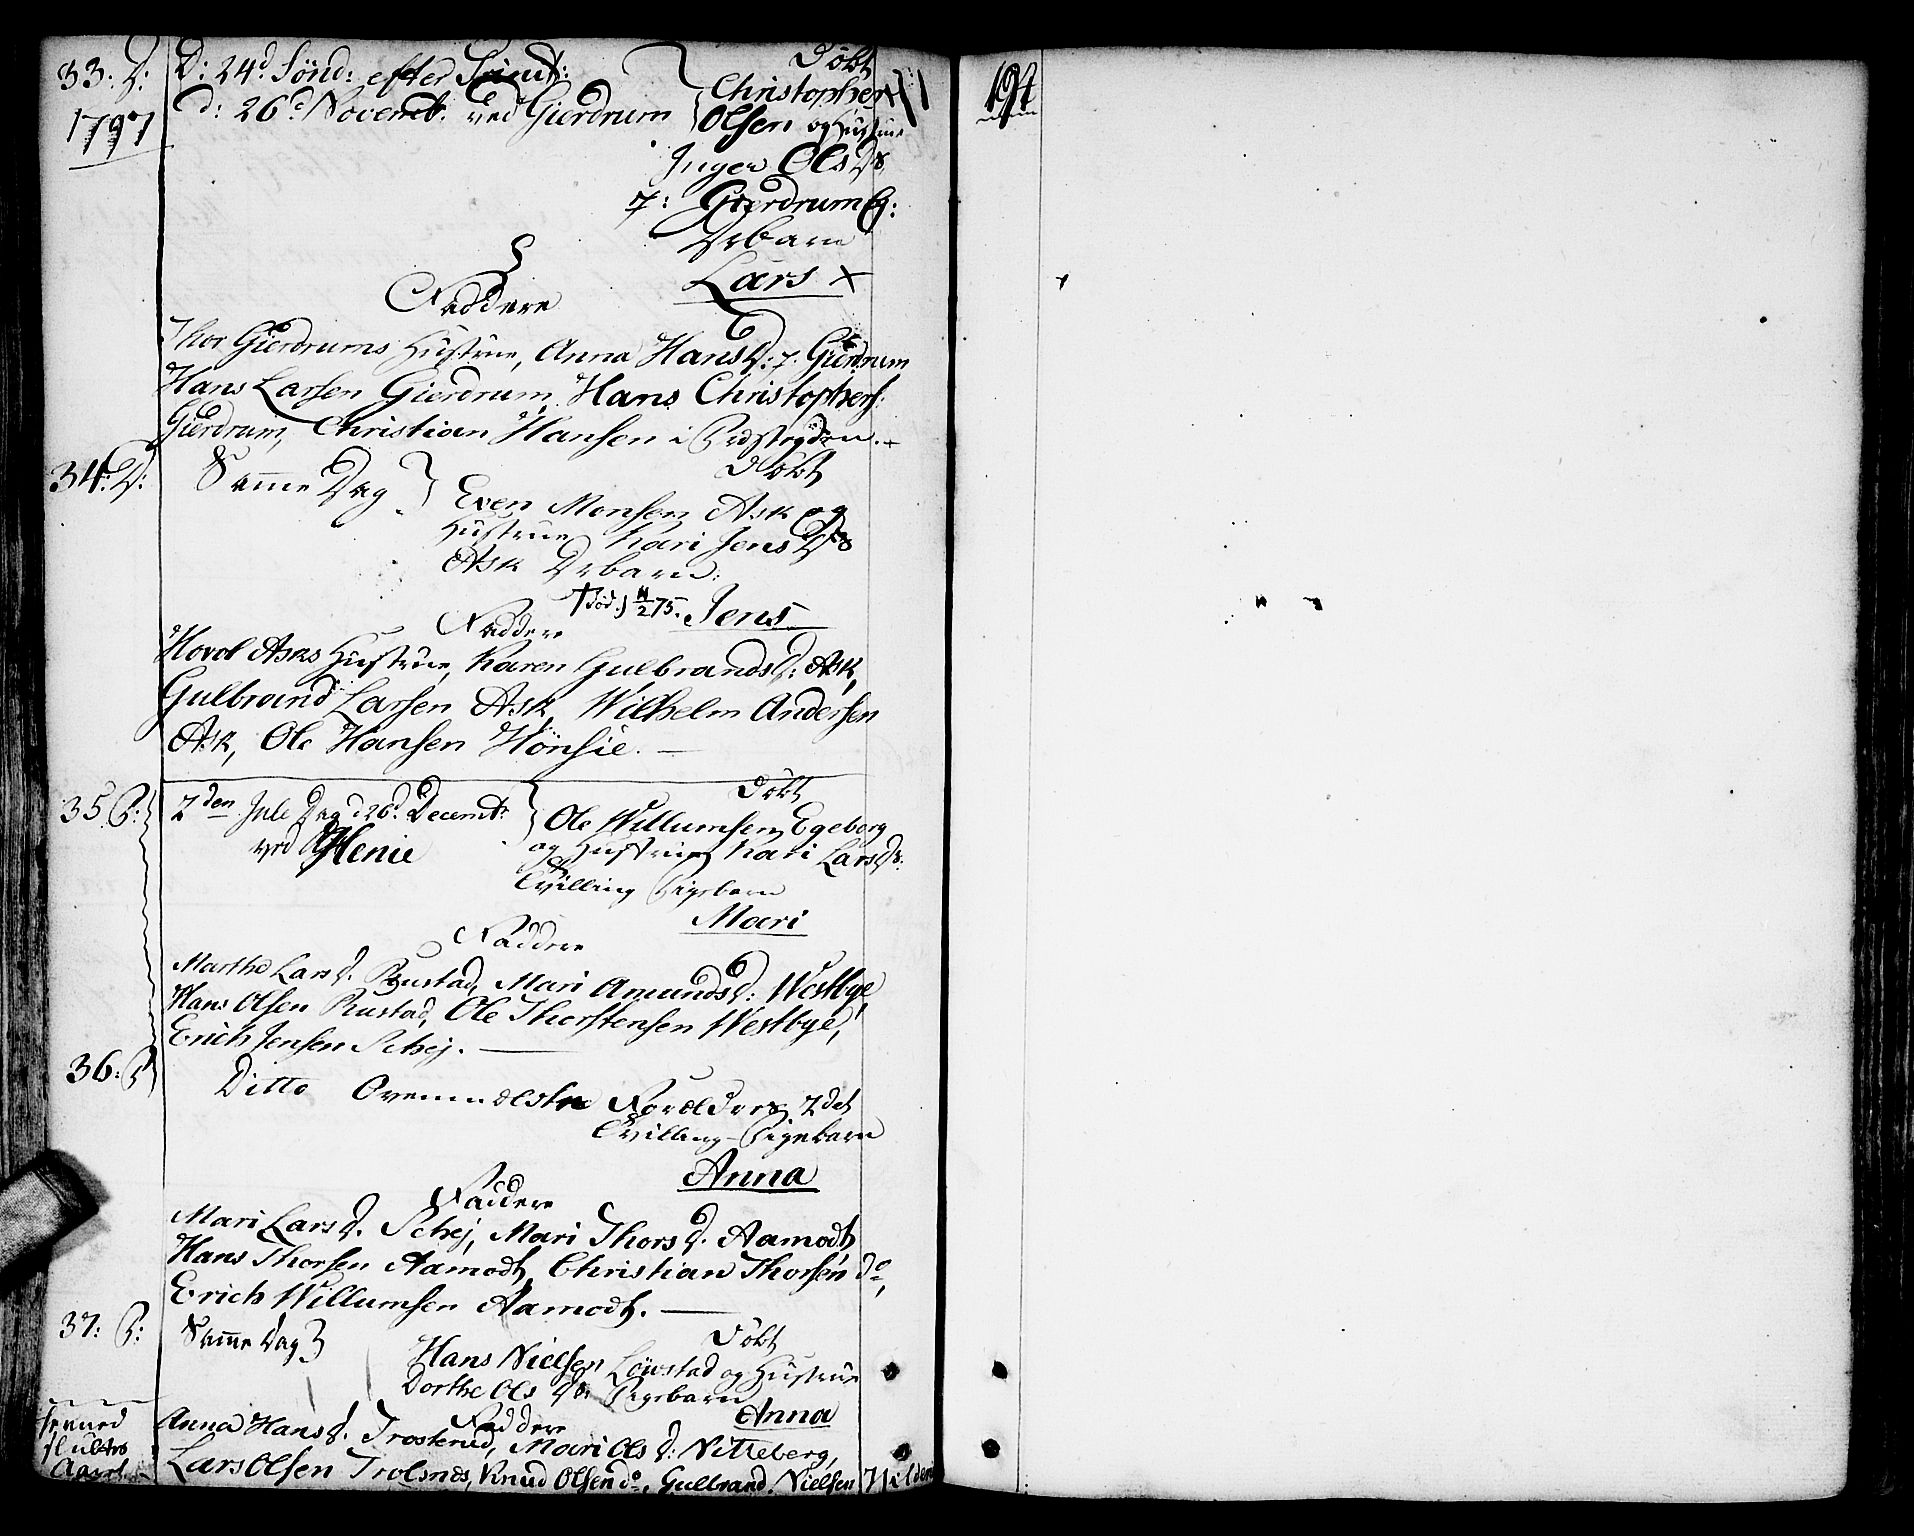 33. D:
1797
D: 24d Sönd: efter Trinit:
d: 26d Novemb: ved Gierdrum
Döbt
Christopher
Olsen og Hustrue
Inger Ols Dr
Gierdrum
Drbarn
Lars ×
Faddere
Thor Gierdrums Hustrue, Anna HansD: Gierdrum
Hans Larsen Gierdrum, Hans Christophers:
Gierdrum, Christian Hansen i
34: D:
Samme Dag
Döbt
Even Monsen Ask og
Hustrue Kari Jens Dr
Ask Drbarn:
† död. 11/2 75. Jens
Faddere
Hovol Asks Hustrue, Karen GulbrandsD: Ask,
Gulbrand Larsen Ask, Wilhelm Andersen
Ask, Ole Hansen Hönsie. —
35 P:
2den Jule Dag d 26d Decembr:
ved Henie
Döbt
Ole Willumsen Egeberg
og Hustrue Kari Lars Dr:
Tvilling Pigebarn
Mari
Faddere
Marthe LarsD. Rustad, Mari AmundsD: Westbye,
Hans Olsen Rustad, Ole Thorstensen Westbye,
Erich Jensen Schej. —
36: P
Ditto Ovenmelste Forældres 2det
Tvilling-Pigebarn
Anna
Faddere
Mari LarsD. Schej, Mari ThorsD. Aamodt,
Hans Thorsen Aamodt, Christian Thorsen do,
Erich Willumsen Aamodt. —
37: P:
Samme Dag
Döbt
Hans Nielsen Löwstad og Hustrue
Dorthe Ols Dr Pigebarn
Anna
Faddere
hermed
sluttes
Aaret
Anna HansD. Trosterud, Mari OlsD: Nitteberg,
Lars Olsen Trolsnes, Knud Olsen do, Gulbrand Nielsen
194